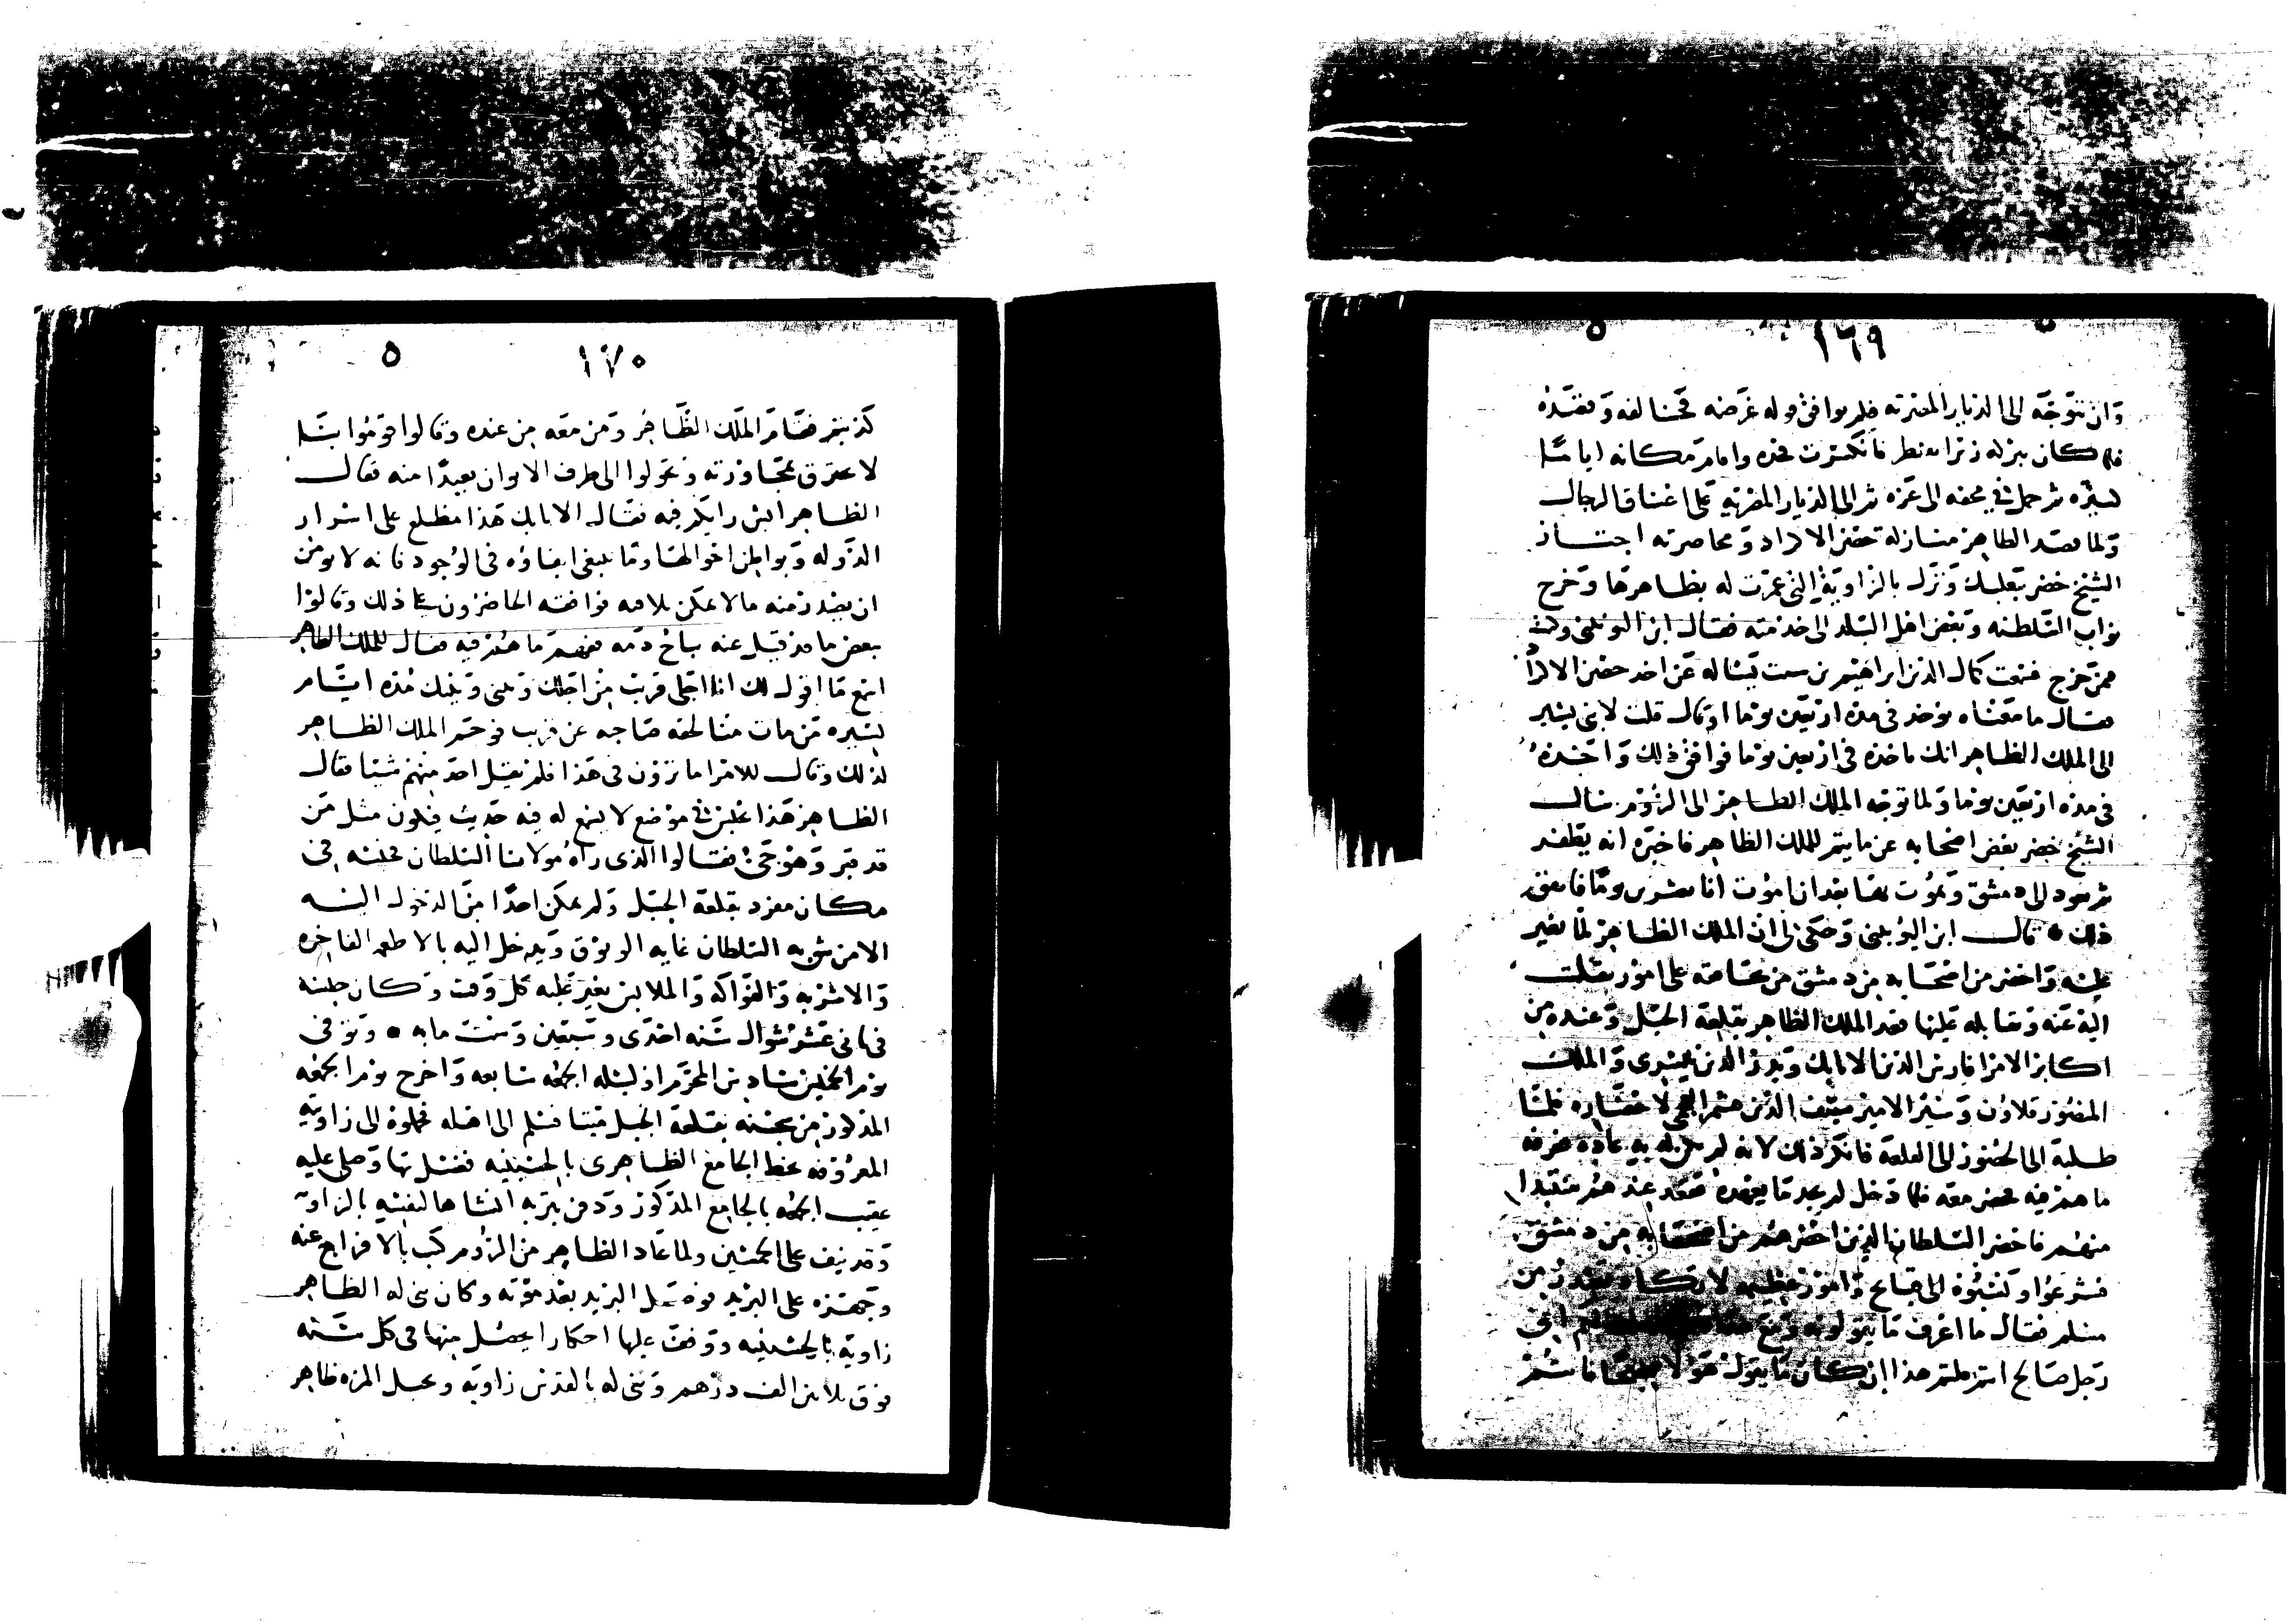 ١٦٩
وان نتوجه الى الديار المصرية فلم يوافق قوله غرضه فخالفه وقصده
فلما كان ببركه زيزا تقنطر فانكسرت فخذه واقام مكانه اياما
يسيره ثم حمل في محفه الى غزه ثم الى الديار المصريه على اعناق الرجال
ولما قصد الظاهر منازلة حصن الاكراد ومحاصرته اجتاز
الشيخ خضر ببعلبك ونزل بالزاوية التي عمرت له بظاهرها وخرج
نواب السلطنه وبعض اهل البلد الى خدمته فقال ابن اليونيني وكنت
ممن خرج فسمعت كمال الدين ابراهيم بن شيت يساله عن اخذ حصن الاكراد
فقال ما معناه يوخذ في مدة اربعين يوما او قال قلت لابني يشير
الى الملك الظاهر انك تاخذه في اربعين يوما فوافق ذلك واخذه
في مده اربعين يوما ولما توجه الملك الظاهر الى الروم سال
الشيخ خضر بعض اصحابه عن ما يتم للملك الظاهر فاخبره انه يظفر
ثم يعود الى دمشق ويموت بها بعد ان اموت انا بعشرين يوما فاتفق
ذلك قال ابن اليونيني وحكى لي ان الملك الظاهر لما تغير
عليه واحضر من اصحابه من دمشق من يحاققه على امور نقلت
اليه عنه وتقابله عليها قعد الملك الظاهر بقلعة الجبل وعنده من
اكابر الامرا فارس الدين الاتابك وبدر الدين بيسرى والملك
المنصور قلاون وسير الامير سيف الدين لاحضاره فلما
طلبه الى الحضور الى القلعة فانكر ذلك لانه لم يكن له به عاده فعرفه
ما هم فيه فحضر معه فلما دخل لم يجد ما يعهده فقعد عندهم منتبذا
منهم فاحضر السلطان الذين احضرهم من اصحابه من دمشق
فشرعوا ونسبوه الى قبايح وامور عظيمه لا تكاد تصدر من
مسلم فقال ما اعرف ما يقولون ومع
رجل صالح انتم قلتم هذا ان كان ما يقول هولا صحيحا فانتم
١٧٠
كذبتم فقام الملك الظاهر ومن معه من عنده وقالوا قوموا بنا
لا نحترق بمجاورته وتحولوا الى طرف الايوان بعيدا منه فقال
الظاهر ايش رايكم فيه فقال الاتابك هذا مطلع على اسرار
الدوله وبواطن احوالها وما ينبغي ابقاوه في الوجود فانه لا يومن
ان يصدر منه ما لا يمكن تلافيه فوافقه الحاضرون على ذلك وقالوا
بعض ما قد قيل عنه يباح دمه ففهم ما هم فيه فقال للملك الظاهر
اسمع ما اقول لك انا اجلى قريب من اجلك وبيني وبينك مده ايام
يسيره من مات منا لحقه صاحبه عن قريب فوجم الملك الظاهر
لذلك وقال للامرا ما ترون في هذا فلم يقل احد منهم شيئا فقال
الظاهر هذا يحبس في موضع لا يسمع له فيه حديث فيكون مثل من
قد قبر وهو حي فقالوا الذي راه مولانا السلطان فحبسه في
مكان مفرد بقلعة الجبل ولم يمكن احدا من الدخول اليه
الا من يثق به السلطان غايه الوثوق ويدخل اليه بالاطعمه الفاخره
والاشربه والفواكه والملابس يغير عليه كل وقت وكان حبسه
في ثاني عشر شوال سنه احدى وسبعين وستمايه وتوفي
يوم الخميس سادس المحرم او ليله الجمعه سابعه واخرج يوم الجمعه
المذكور من محبسه بقلعة الجبل ميتا فسلم الى اهله فحملوه الى زاويته
المعروفه بخط الجامع الظاهري بالحسينيه فغسل بها وصلى عليه
عقيب الجمعه بالجامع المذكور ودفن بتربه انشاها لنفسه بالزاويه
وقد نيف على الخمسين ولما عاد الظاهر من الروم كتب بالافراج عنه
وجهزه على البريد فوصل البريد بعد موته وكان بنى له الظاهر
زاوية بالحسينيه ووقف عليها احكارا يحصل منها في كل سنه
فوق ثلاثين الف درهم وبنى له بالقدس زاويه وبجبل المزه ظاهر